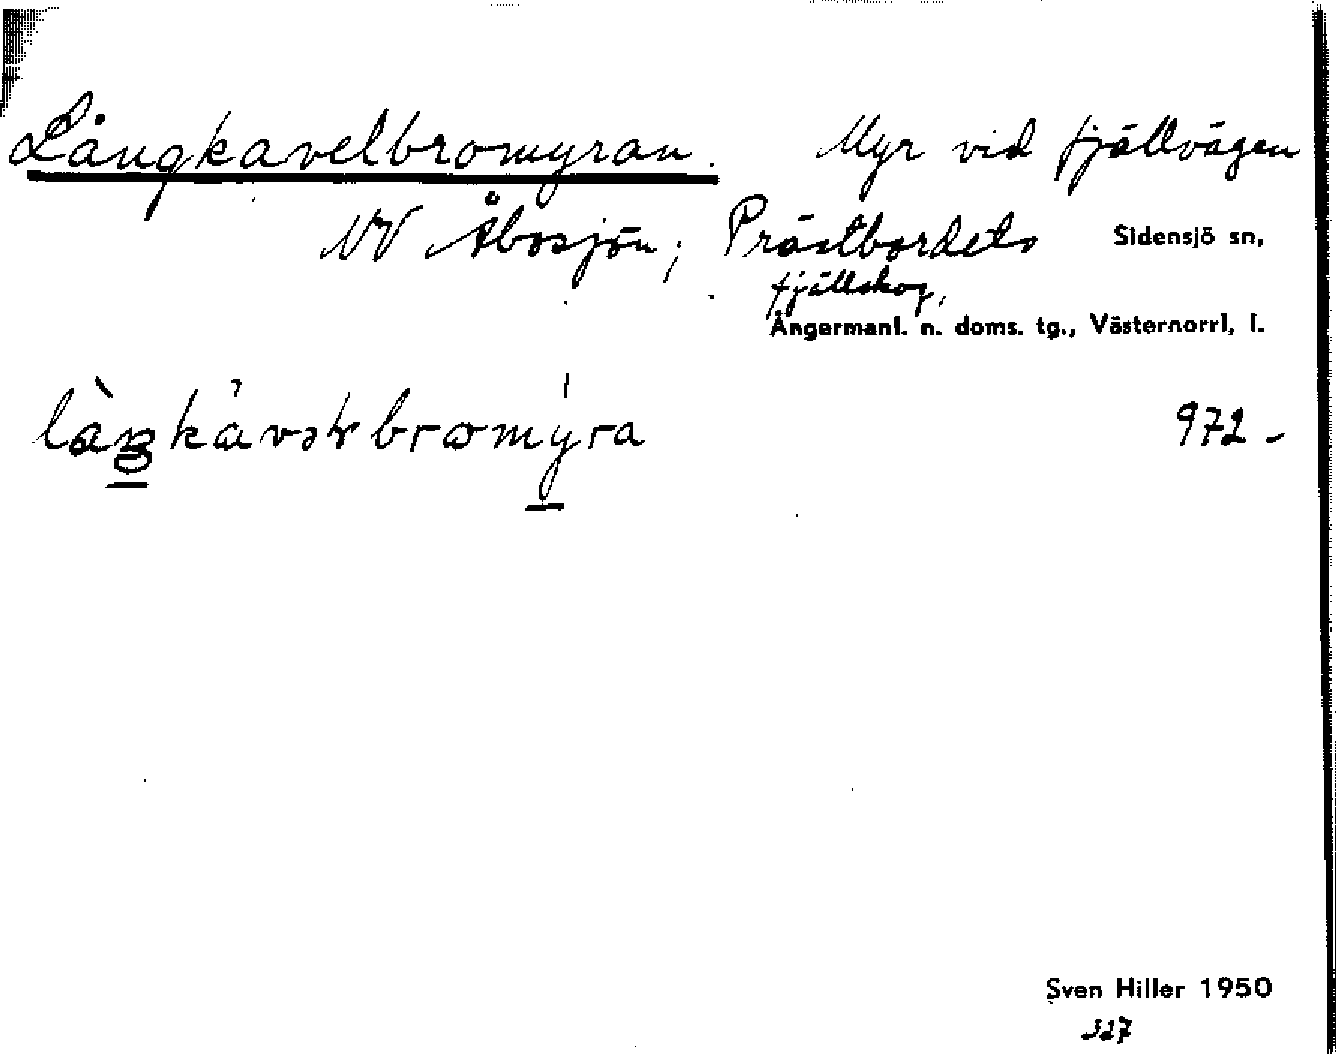 Långkavelbromyran. Myr vid fjällvägen
NV Åbosjön; Prästbordets Sidensjö sn,
fjällskog,
Ångermanl. n. doms. tg., Västernorrl. l.
972-
Sven Hiller 1950
327